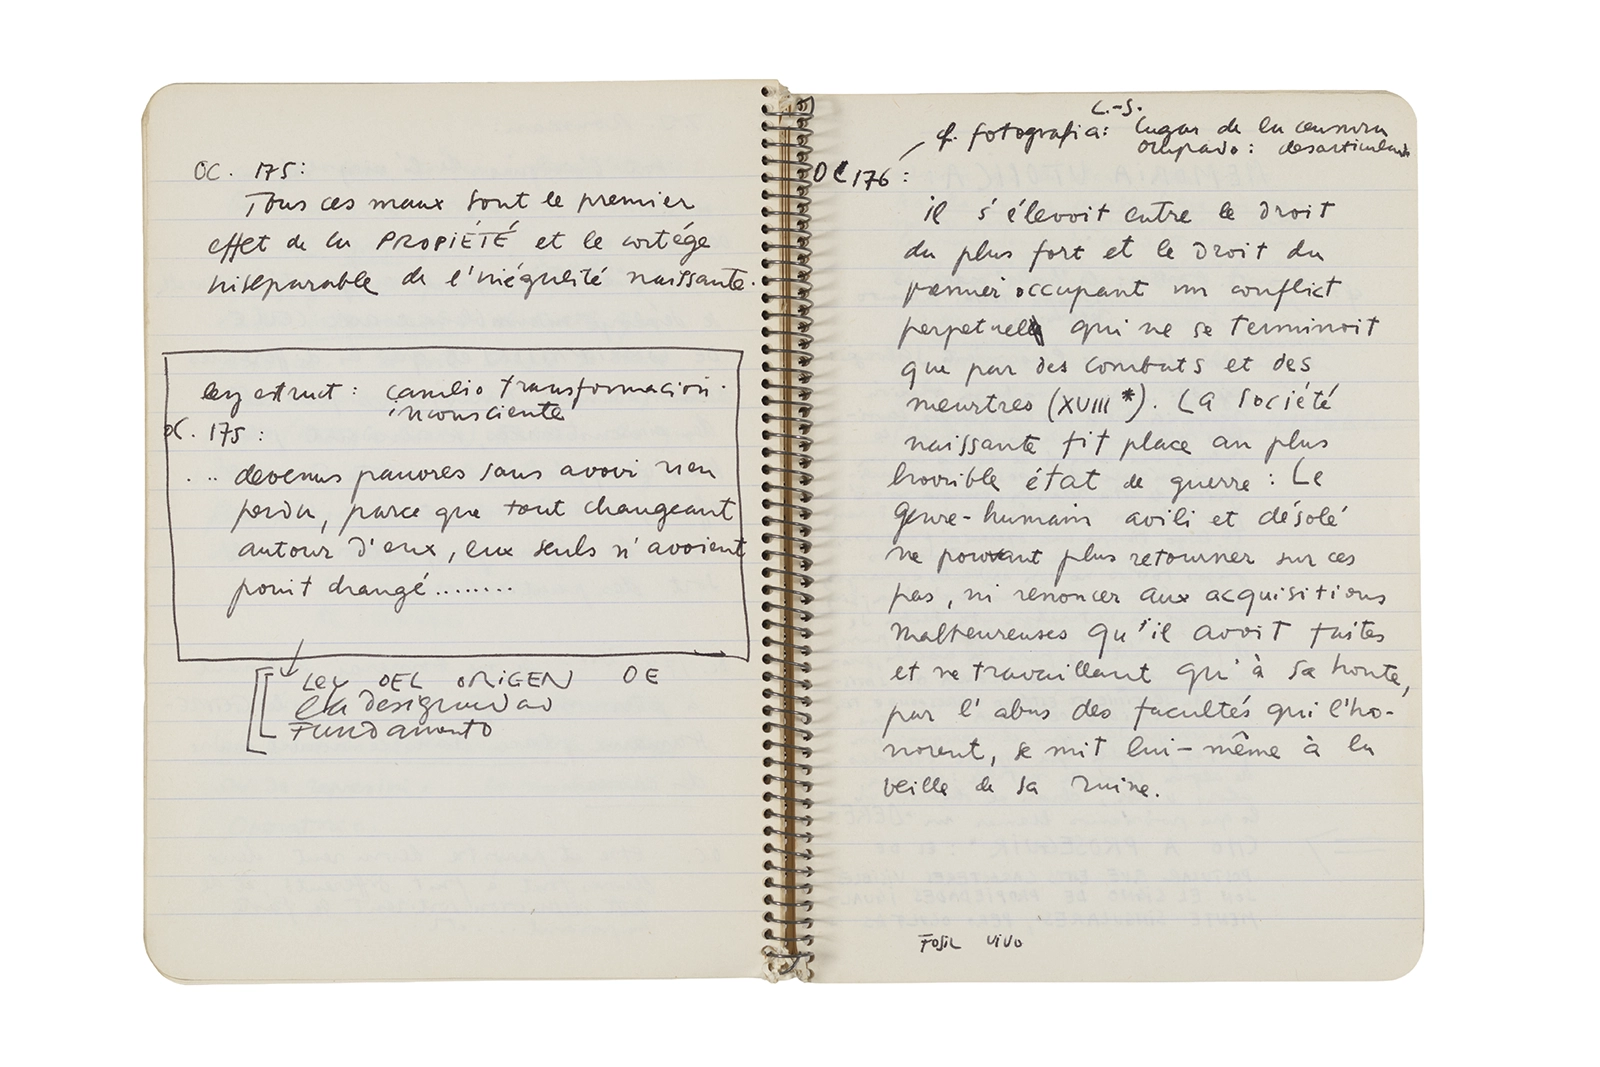 OC. 175:
Tous ces maux sont le premier
effet de la PROPIÉTÉ et le cortége
inséparable de l'inégalité naissante.
ley estruct: cambio transformación.
inconsciente
OC. 175:
... devenus pauvres sans avoir rien
perdu, parce que tout changeant
autour d'eux, eux seuls n'avoient
point changé........
LEY DEL ORIGEN DE
la desigualdad
Fundamento
L.-S.
cf. fotografia: lugar de la censura
ocupado: desarticulando
OC 176:
il s'élevoit entre le droit
du plus fort et le droit du
premier occupant un conflict
perpetuel qui ne se terminoit
que par des combats et des
meurtres (XVIII*). La Société
naissante fit place au plus
horrible état de guerre: Le
genre-humain avili et désolé
ne pouvant plus retourner sur ces
pas, ni renoncer aux acquisitions
malheureuses qu'il avoit faites
et ne travaillant qu'à sa honte,
par l'abus des facultés qui l'ho-
norent, se mit lui-même à la
veille de sa ruine.
FOSIL VIVO